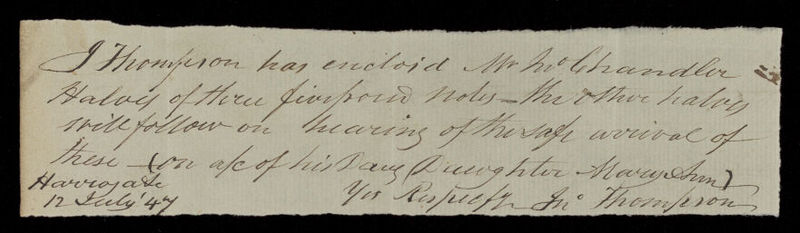 J Thompson has enclosd Mr Jno Chandler
Halves of three five pound notes - the other halves
will follow on hearing of the safe arrival of
these - (on a/c of his Daughter Mary Ann)
Harrogate
12 July '47
Yrs Respectfy Jno Thompson